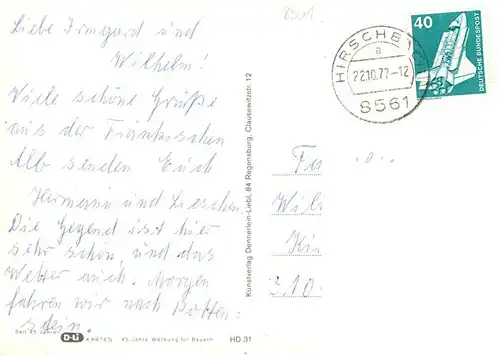 Liebe Irmgard und
Wilhelm!
Viele schöne Grüße
aus der Fränkischen
Alb senden Euch
Hermann und Lieschen.
Die Gegend ist hier
sehr schön und das
Wetter auch. Morgen
fahren wir nach Potten-
stein.
Seit 45 Jahren D-Li KARTEN 45 Jahre Werbung für Bayern HD 31
Kunstverlag Dennerlein-Liebl, 84 Regensburg, Clausewitzstr. 12
8501
HIRSCHBACH
a
22.10.77-12
8561
40
DEUTSCHE BUNDESPOST
Fa
Wil
Ki
310